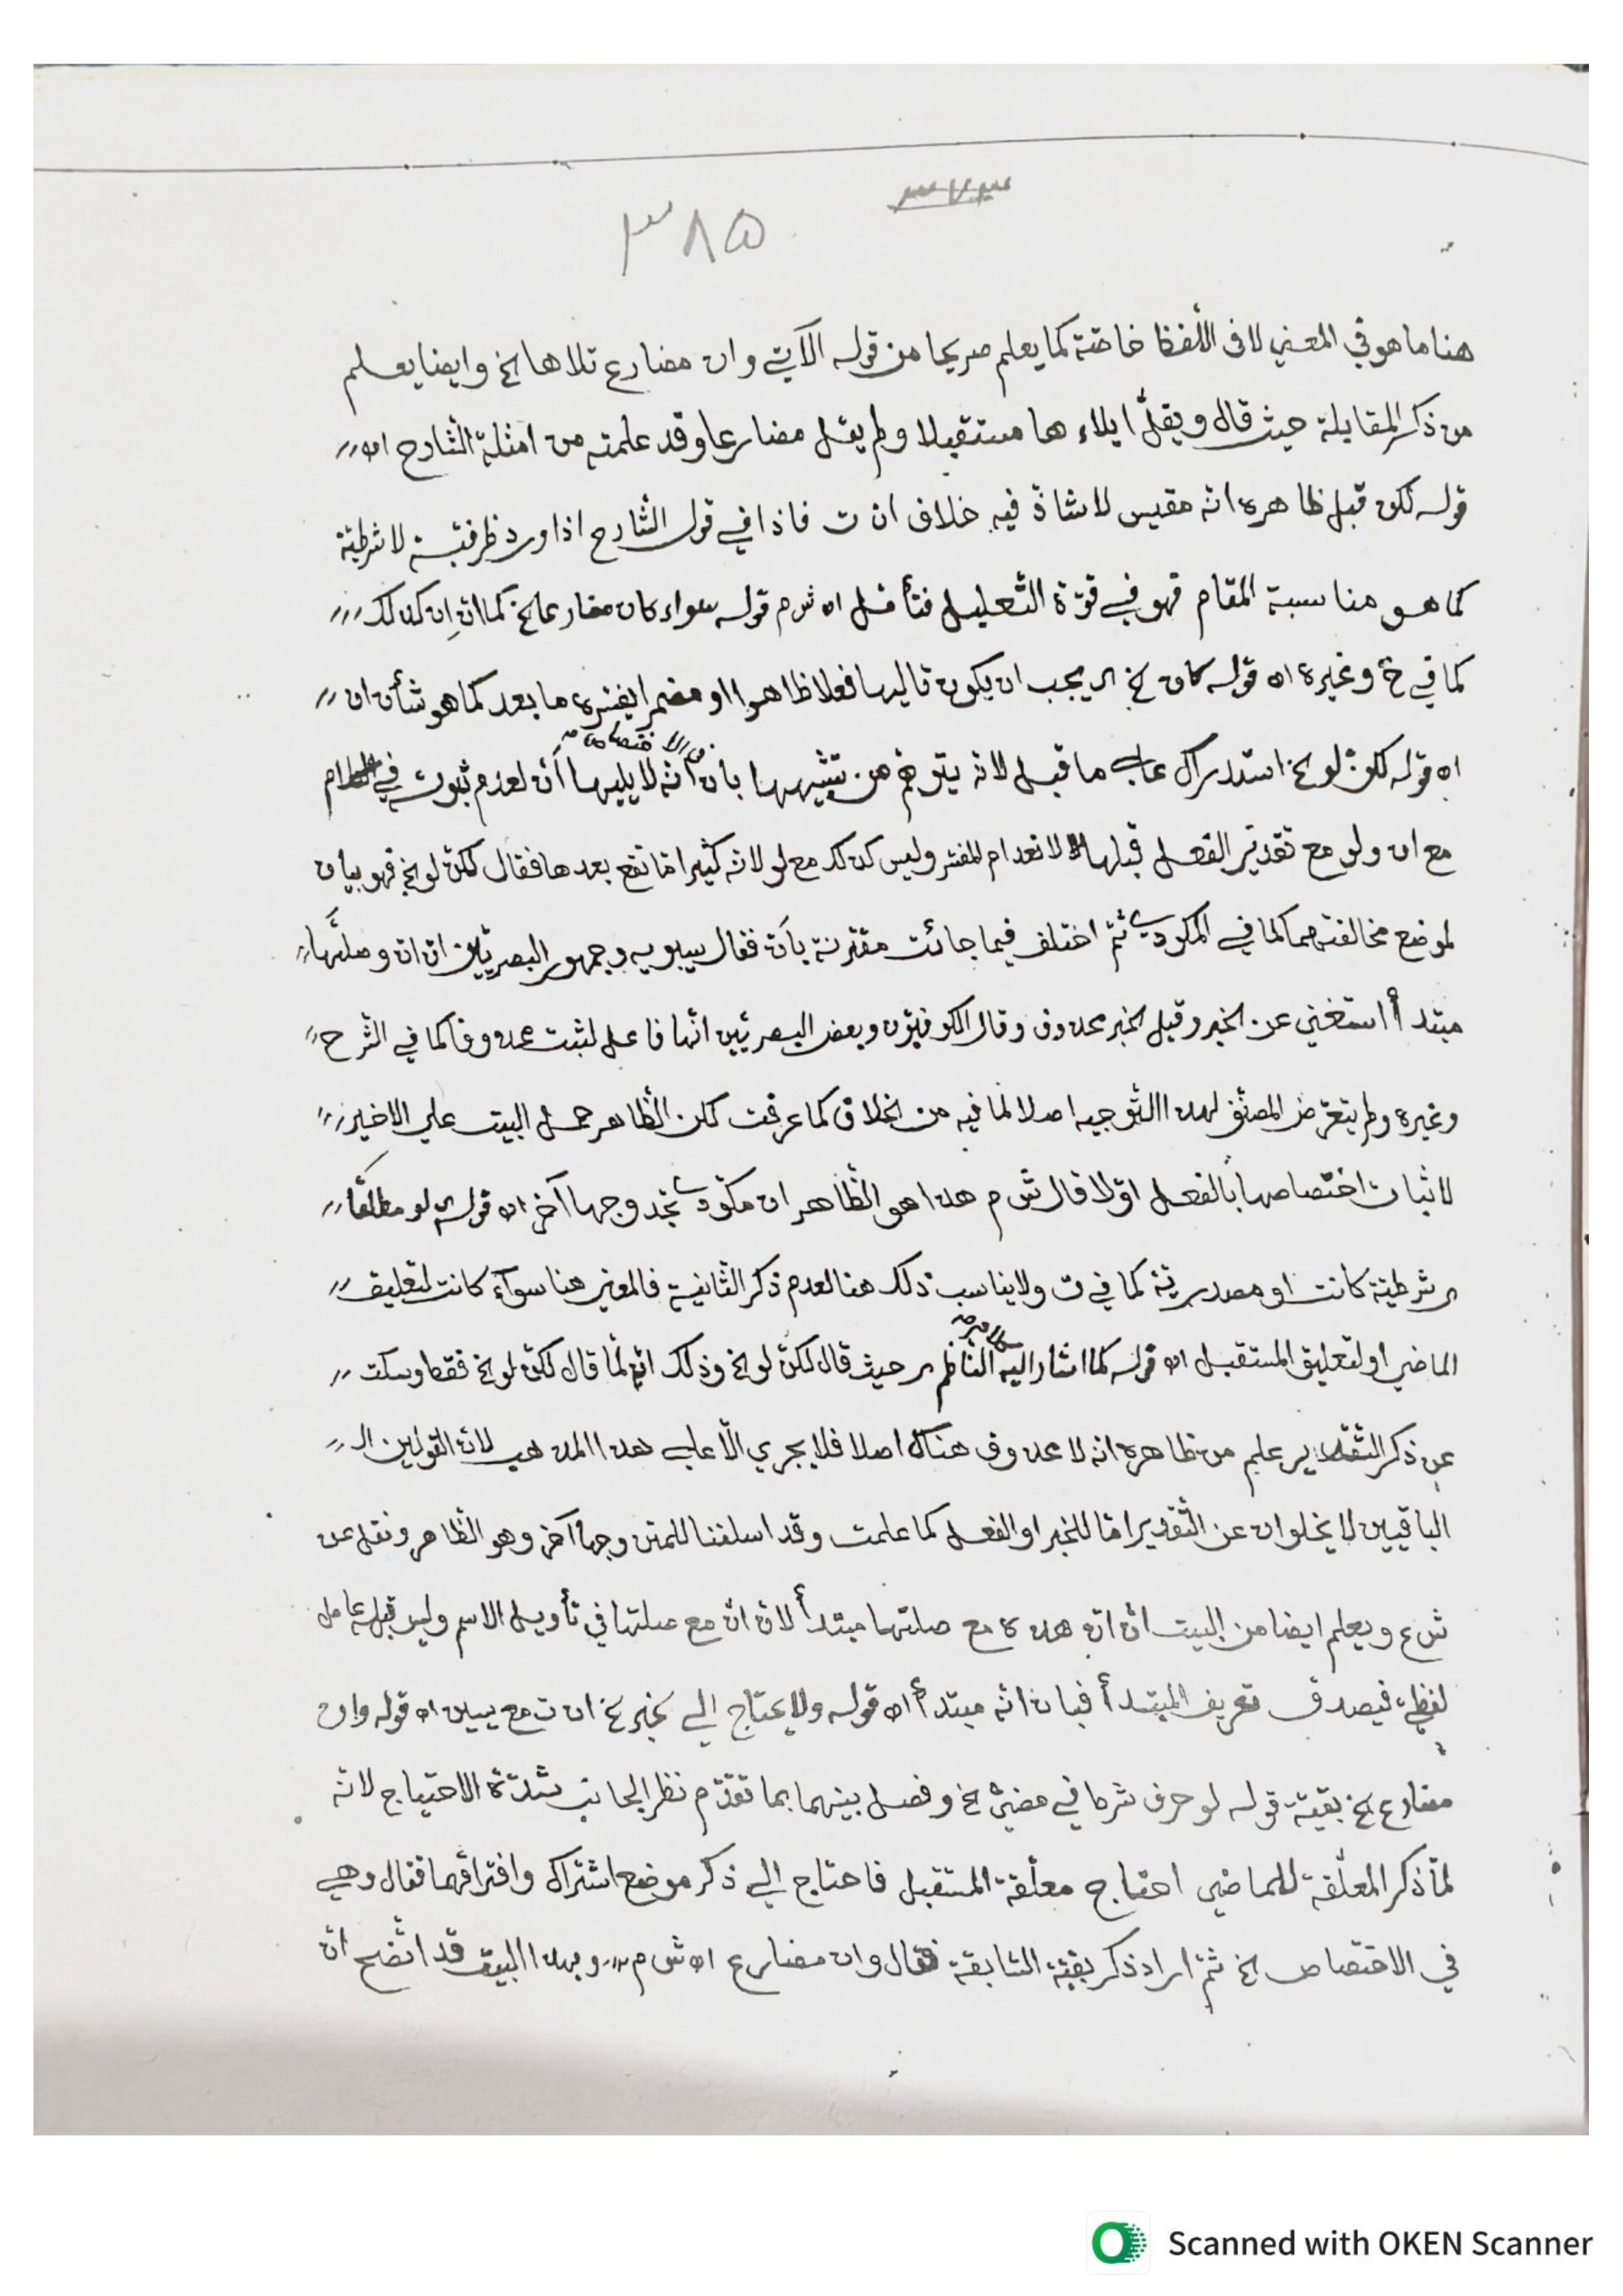 ٣٧٣
٣٨٥
هنا ما هو في المعني لا في اللّفظ خاصّة كما يعلم صريحا من قوله الآتي وان مضارع تلاها الخ وايضا يعلم
من ذكر المقابلة حيث قال ويقلّ ايلاءها مستقبلا ولم يقل مضارعا وقد علمته من امثلة الشّارح اه
قوله لكن قبل ظاهره انّه مقيس لا شاذّ فيه خلاف ان ت فاذا في قول الشّارح اذا ورد ظرفيّة لا شرطيّة
كما هو مناسبة المقام فهو في قوّة التّعليل فتأمّل اه ش م قوله سواء كان مضارعا الخ كما انّ إن كذلك
كما في خ وغيره اه قوله كان الخ اي يجب ان يكون تاليها فعلا ظاهرا او مضمرا يفسّره ما بعد كما هو شأن ان
اه قوله لكنّ لو الخ استدراك علي ما قبل لانّه يتوهّم من تشبيهها بأن في الاختصاص انّه لا يليها أنّ لعدم ثبوته في
مع ان ولو مع تقدير الفعل قبلها لانعدام المفسّر وليس كذلك مع لو لانّه كثيرا مّا تقع بعدها فقال لكنّ لو الخ فهو بيان
لموضع مخالفتهما كما في المكودي ثمّ اختلف فيما جائت مقترنة بأنّ فقال سيبويه وجمهور البصريّين انّ انّ وصلتها
مبتدأ استغني عن الخبر وقيل الخبر محذوف وقال الكوفيّون وبعض البصريّين انّها فاعل لثبت محذوفا كما في الشّرح
وغيره ولم يتعرّض المصنّف لهذا التّوجيه اصلا لما فيه من الخلاف كما عرفت لكن الظّاهر حمل البيت علي الاخير
لاثبات اختصاصها بالفعل اوّلا قال ش م هذا هو الظّاهر ان مكّودي تجد وجها آخر اه قوله لو مطلقا
اي شرطيّة كانت او مصدريّة كما في ت ولا يناسب ذلك هنا لعدم ذكر الثّانية فالمعني هنا سوآء كانت لتعليق
الماضي او لتعليق المستقبل اه قوله كما اشار اليه النّاظم اي حيث قال لكنّ لو الخ وذلك انّه لمّا قال لكنّ لو الخ فقط وسكت
عن ذكر التّقدير علم من ظاهره انه لا محذوف هناك اصلا فلا يجري الّا علي هذا المذهب لانّ القولين
الباقيين لا يخلوان عن التّقدير امّا للخبر او الفعل كما علمت وقد اسلفنا للمتن وجها آخر وهو الظّاهر ونقل عن
ش ع ويعلم ايضا من البيت أنّ انّ هذه مع صلتها مبتدأ لانّ انّ مع صلتها في تأويل الاسم وليس قبله عامل
لفظيّ فيصدق تعريف المبتدأ فبان انّه مبتدأ اه قوله ولا يحتاج الي خبر الخ ان ت مع يسين اه قوله وان
مضارع الخ بقيّة قوله لو حرف شرط في مضيّ الخ وفصل بينهما بما تقدّم نظر الجانب شدّة الاحتياج لانّه
لمّا ذكر المعلّقة للماضي احتاج معلّقة المستقبل فاحتاج الي ذكر موضع اشتراك وافتراقهما فقال وهي
في الاختصاص الخ ثمّ اراد ذكر بقيّة السّابقة فقال وان مضارع اه ش م وبهذا البيت قد اتّضح انّ
Scanned with OKEN Scanner